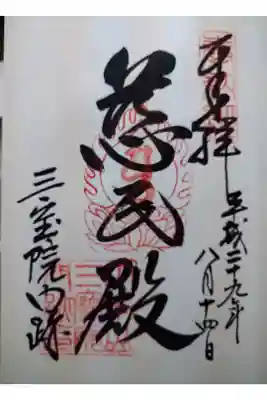 奉拝
平成二十九年
八月十四日
慈氏殿
三宝院門跡